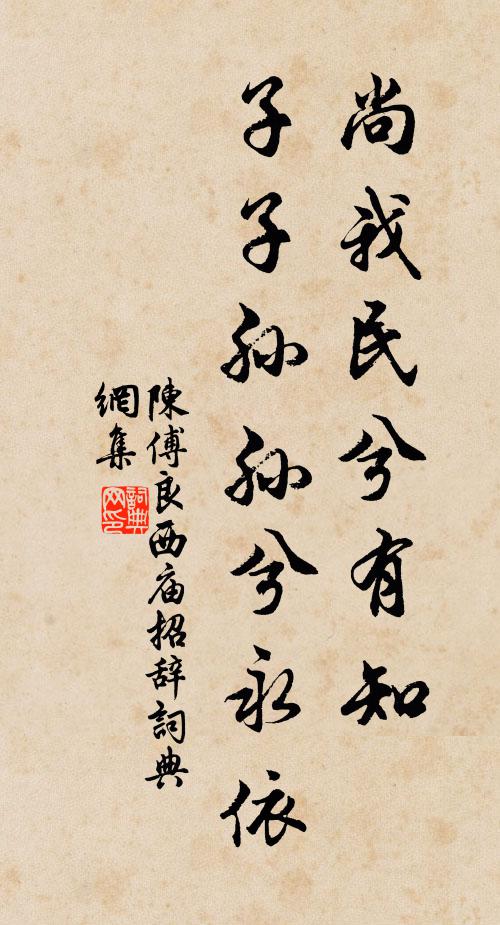 尚我民兮有知
子子孫孫兮永依
陳傅良西庙招辞詞典
網集
詞典
网印